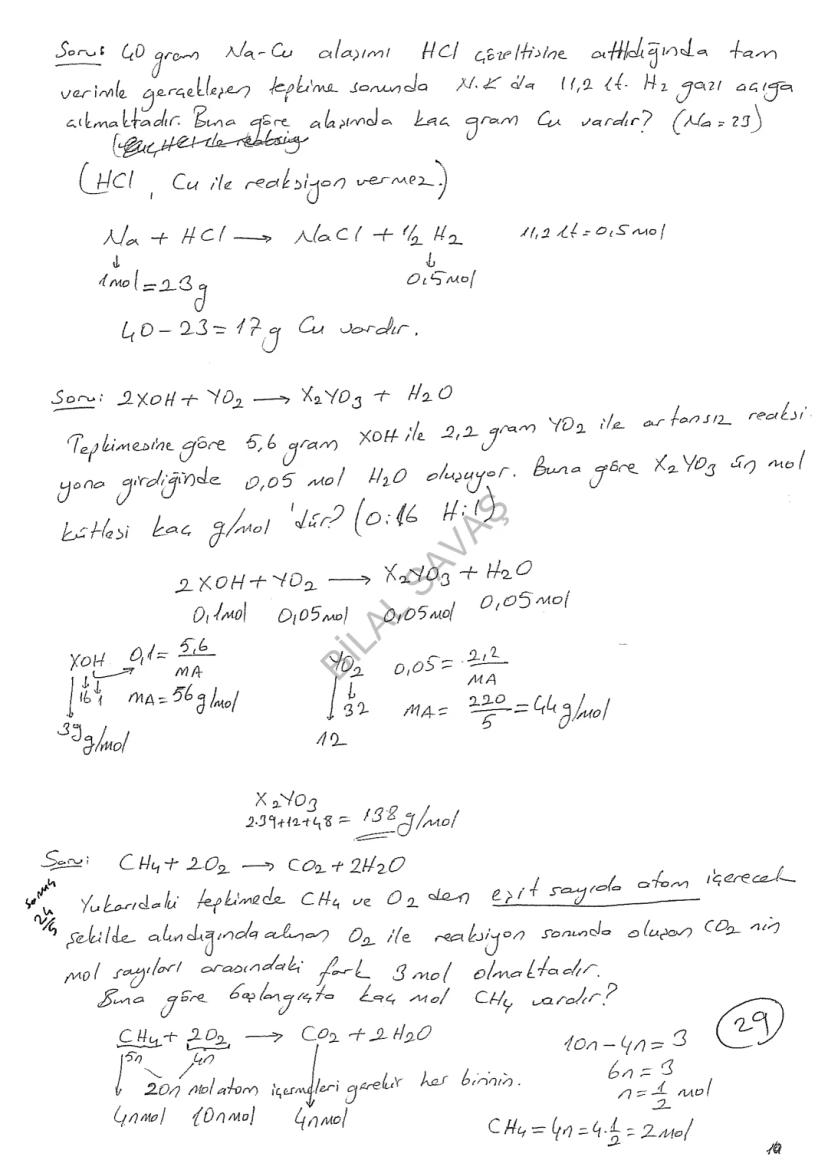 Soru: 40 gram Na-Cu alaşımı HCl çözeltisine atıldığında tam
verimle gerçekleşen tepkime sonunda N.K'da 11,2 lt. H2 gazı açığa
çıkmaktadır. Buna göre alaşımda kaç gram Cu vardır? (Na=23)
(HCl, Cu ile reaksiyon vermez.)
Na + HCl → NaCl + 1/2 H2 11,2 lt = 0,5 mol
↓ ↓
1mol=23g 0,5 mol
40-23=17g Cu vardır.
Soru: 2XOH + YO2 → X2YO3 + H2O
Tepkimesine göre 5,6 gram XOH ile 2,2 gram YO2 ile artansız reaksi-
yona girdiğinde 0,05 mol H2O oluşuyor. Buna göre X2YO3 ün mol
kütlesi kaç g/mol 'dür? (O:16 H:1)
BİLAL SAVAŞ
2XOH + YO2 → X2YO3 + H2O
0,1mol 0,05mol 0,05mol 0,05mol
XOH 0,1= 5,6/MA YO2 0,05= 2,2/MA
16 1 MA=56g/mol 32 MA= 220/5 =44g/mol
39g/mol 12
X2YO3
2.39+12+48 = 138 g/mol
Soru: CH4 + 2O2 → CO2 + 2H2O
Yukarıdaki tepkimede CH4 ve O2 den eşit sayıda atom içerecek
şekilde alındığında alınan O2 ile reaksiyon sonunda oluşan CO2 nin
mol sayıları arasındaki fark 3 mol olmaktadır.
Buna göre başlangıçta kaç mol CH4 vardır?
CH4 + 2O2 → CO2 + 2H2O 10n-4n=3 29
5n 4n 6n=3
20n mol atom içermeleri gerekir her birinin. n=1/2 mol
4nmol 10nmol 4nmol CH4=4n=4.1/2=2mol